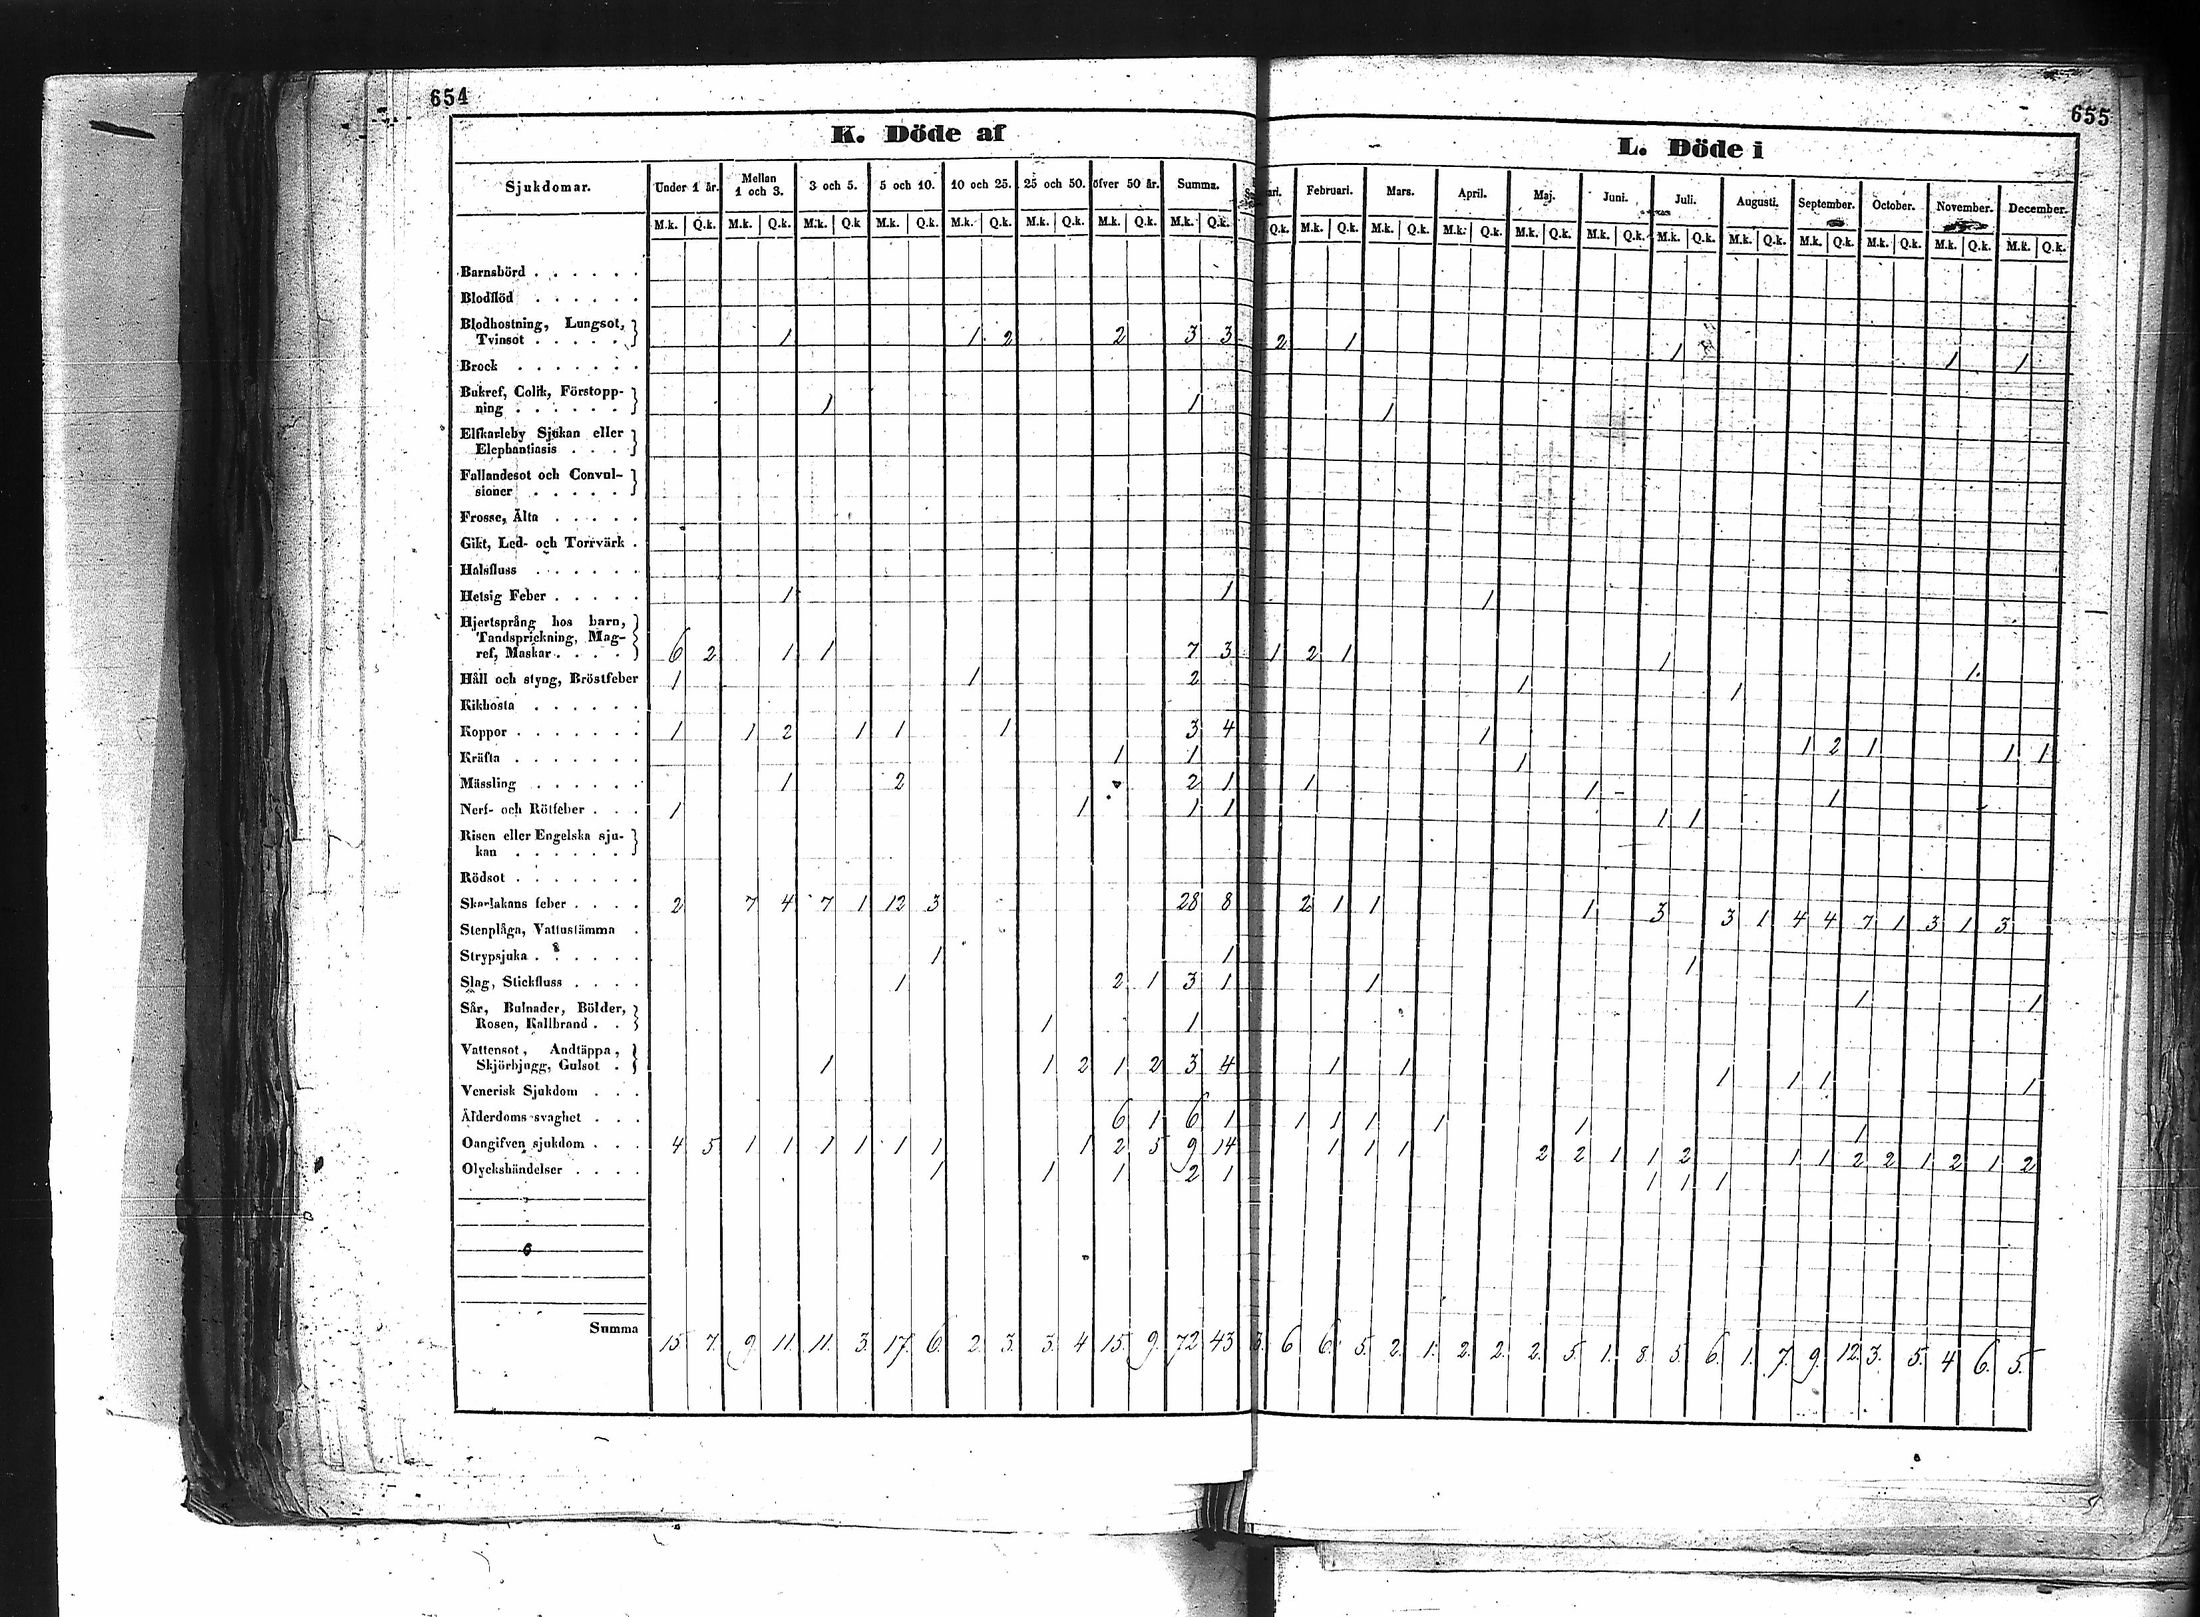 654
655
K. Döde af
L. Döde i
Sjukdomar. Under 1 år. Mellan 1 och 3. 3 och 5. 5 och 10. 10 och 25. 25 och 50. öfver 50 år. Summa.
ari. Februari. Mars. April. Maj. Juni. Juli. Augusti. September. October. November. December.
M.k. Q.k. M.k. Q.k. M.k. Q.k M.k. Q.k. M.k. Q.k. M.k. Q.k. M.k. Q.k. M.k. Q.k.
Q.k. M.k. Q.k. M.k. Q.k. M.k. Q.k. M.k. Q.k. M.k. Q.k. M.k. Q.k. M.k. Q.k. M.k. Q.k. M.k. Q.k. M.k. Q.k. M.k. Q.k.
Barnsbörd . . . . . .
Blodflöd . . . . . .
Blodhostning, Lungsot,
Tvinsot . . . . . 1 1 2 2 3 3 2 1 1 1 1
Brock . . . . . . .
Bukref, Colik, Förstopp-
ning . . . . . . 1 1 1
Elfkarleby Sjukan eller
Elephantiasis . . .
Fallandesot och Convul-
sioner . . . . .
Frosse, Älta . . . . .
Gikt, Led- och Torrvärk .
Halsfluss . . . . . .
Hetsig Feber . . . . . 1 1 1
Hjertsprång hos barn,
Tandsprickning, Mag-
ref, Maskar . . . . 6 2 1 1 7 3 1 2 1 1 1.
Håll och styng, Bröstfeber 1 1 2 1 1
Kikhosta . . . . . .
Koppor . . . . . . . 1 1 2 1 1 1 3 4 1 1 2 1 1 1
Kräfta . . . . . . . 1 1 1
Mässling . . . . . . 1 2 2 1 1 1 1
Nerf- och Rötfeber . . . 1 1 1 1 1 1
Risen eller Engelska sju-
kan . . . . . .
Rödsot . . . . . . .
Skarlakans feber . . . . 2 7 4 7 1 12 3 28 8 2 1 1 1 3 3 1 4 4 7 1 3 1 3
Stenplåga, Vattustämma .
Strypsjuka . . . . . . 1 1 1
Slag, Stickfluss . . . . 1 2 1 3 1 1 1 1
Sår, Bulnader, Bölder,
Rosen, Kallbrand . . 1 1
Vattensot, Andtäppa,
Skjörbjugg, Gulsot . 1 1 2 1 2 3 4 1 1 1 1 1 1
Venerisk Sjukdom . . .
Ålderdoms svaghet . . . 6 1 6 1 1 1 1 1 1 1
Oangifven sjukdom . . . 4 5 1 1 1 1 1 1 1 2 5 9 14 1 1 1 2 2 1 1 2 1 1 2 2 1 2 1 2
Olyckshändelser . . . . 1 1 1 2 1 1 1 1
Summa 15 7. 9 11 11. 3. 17. 6. 2. 3. 3. 4 15. 9. 72 43 3. 6 6. 5. 2. 1. 2. 2. 2. 5. 1. 8. 5. 6. 1. 7. 9. 12. 3. 5. 4 6. 5.